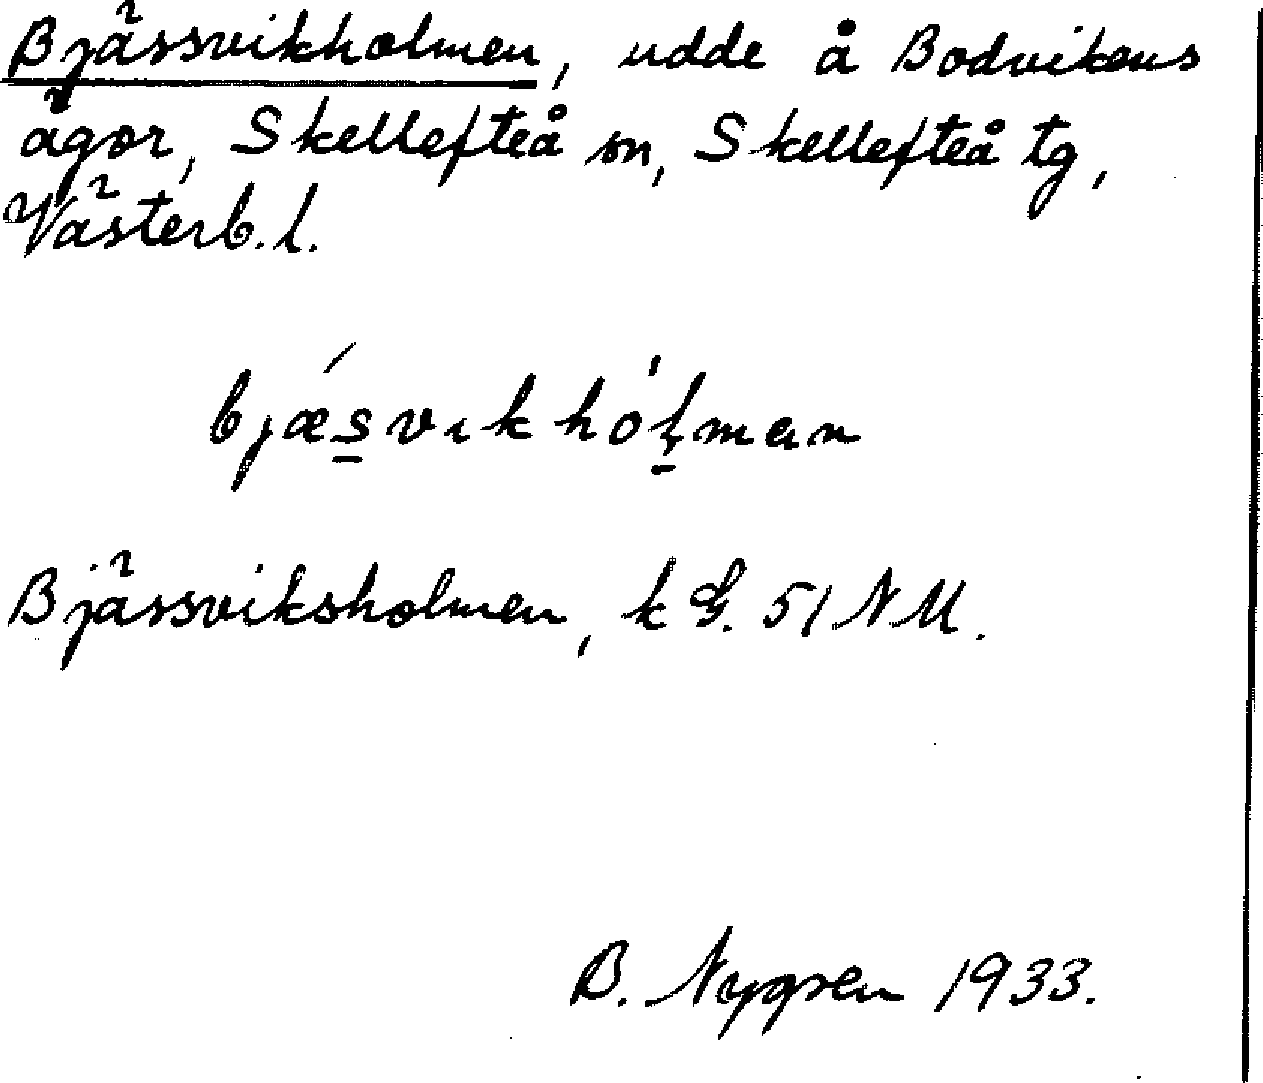 Bjässvikholmen, udde å Bodvikens
ägor, Skellefteå sn, Skellefteå tg,
Västerb. l.
bjǽs̲vıkhól̲man
Bjässviksholmen, k G. 51 NM.
B. Nygren 1933.